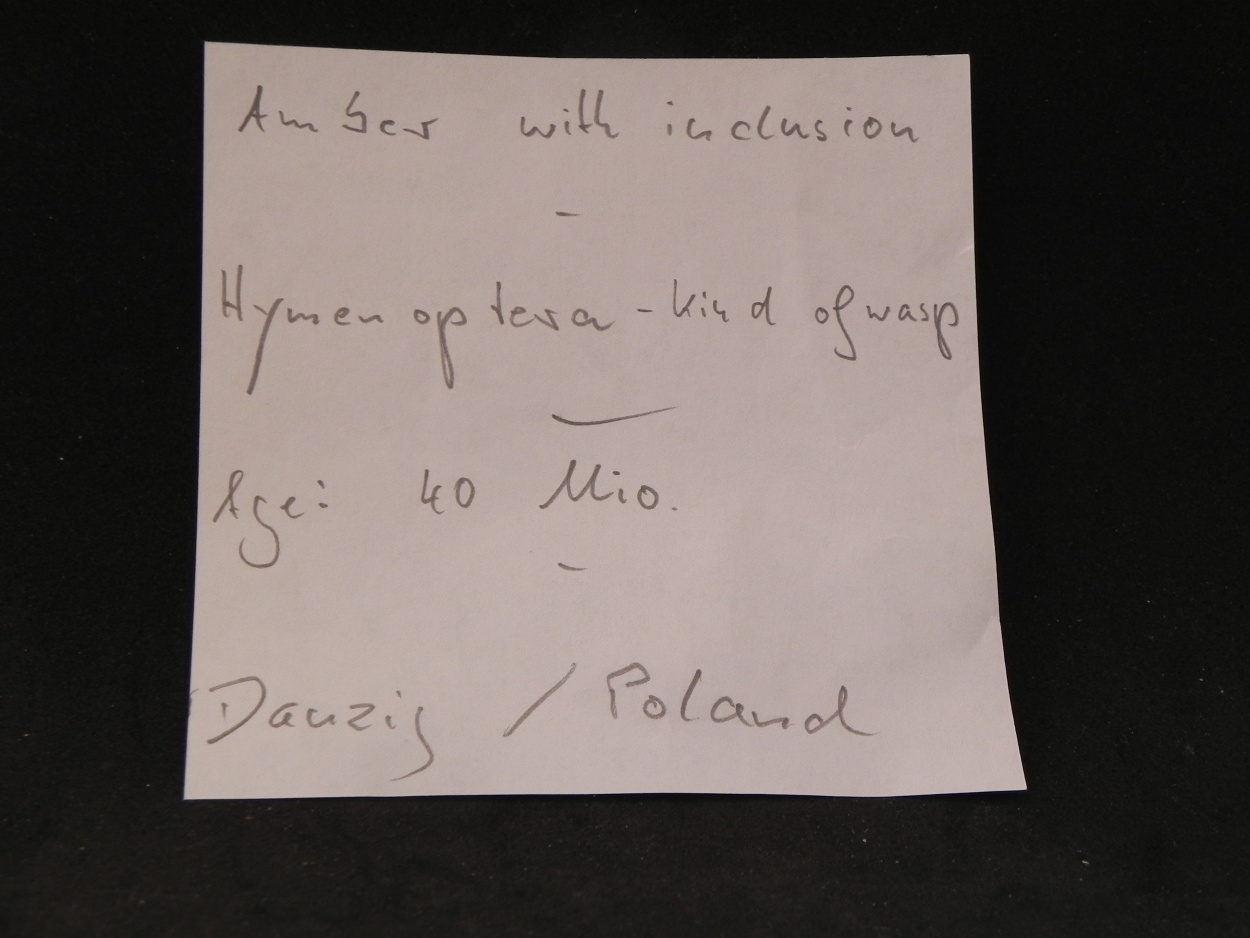 Amber with inclusion
-
Hymenoptera - kind of wasp
-
Age: 40 Mio.
-
Danzig / Poland